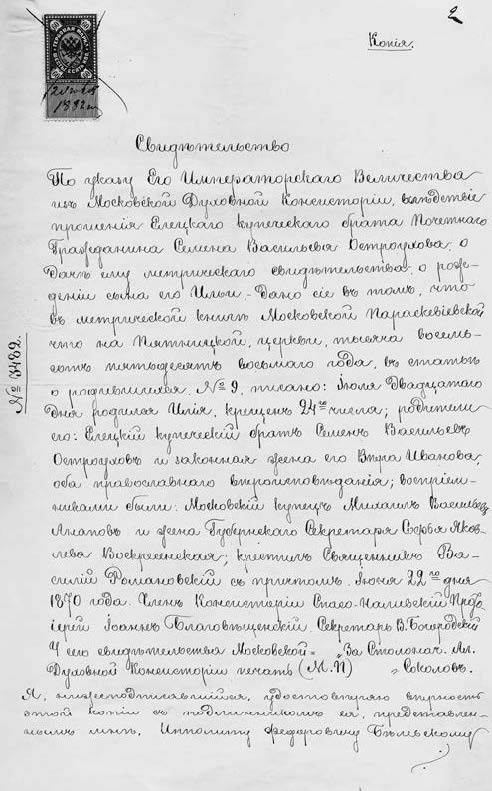 2
Копія.
1882
Свидѣтельство
По указу Его Императорскаго Величества
изъ Московской Духовной Консисторіи, вслѣдствіе
прошенія Елецкаго купеческаго брата Почетнаго
Гражданина Семена Васильева Остроухова, о
дачѣ ему метрическаго свидѣтельства о рож-
деніи сына его Ильи. – Дано сіе въ томъ, что
въ метрической книгѣ Московской Параскевіевской
что на Пятницкой, церкви, тысяча восемь-
сотъ пятьдесятъ восьмаго года, въ статьѣ
о родившихся № 9, писано: Іюля Двадцатаго
дня родился Илія, крещенъ 24го числа; родители
его: Елецкій купеческій братъ Семенъ Васильевъ
Остроуховъ и законная жена его Вѣра Иванова,
оба православнаго вѣроисповѣданія; воспріем-
никами были: Московскій купецъ Михаилъ Васильевъ
Анановъ и жена Губернскаго Секретаря Софья Яков-
лева Воскресенская; крестилъ Священникъ Ва-
силій Романовскій съ причтомъ. Іюня 22го дня
1870 года. Членъ Консисторіи Спасо-Наливскій Прото-
іерей Іоаннъ Благовѣщенскій. Секретарь В. Богородскій
У его свидѣтельства Московской = "За Столонач. Ал.
Духовной Консисторіи печать (М.П) " Соколовъ.
Я, нижеподписавшійся, удостовѣряю вѣрность
этой копіи съ подлинникомъ ея, представлен-
нымъ мнѣ, Ипполиту Федоровичу Бѣльскому
№ 3482.